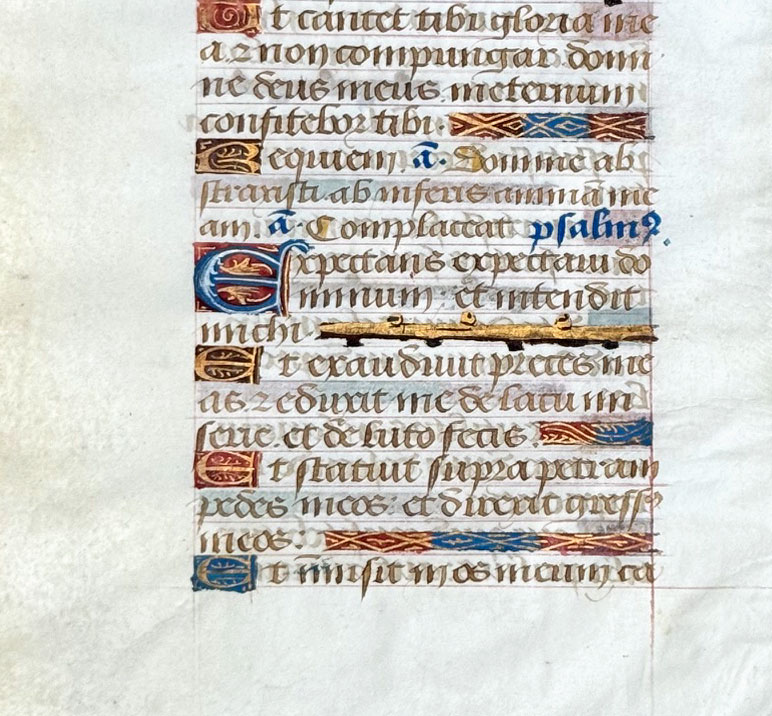 Et cantet tibi gloria me
a ⁊ non compungar domi
ne deus meus ineternum
confitebor tibi.
Requiem. ā. Domine ab
straxisti ab inferis animā me
am. ā. Complaceat psalmꝰ.
Expectans expectaui do
minum: et intendit
michi
Et exaudiuit preces me
as ⁊ eduxit me de lacu mi
serie. et de luto fecis.
Et statuit supra petram
pedes meos: et direxit gressꝰ
meos.
Et īmisit in os meum ca